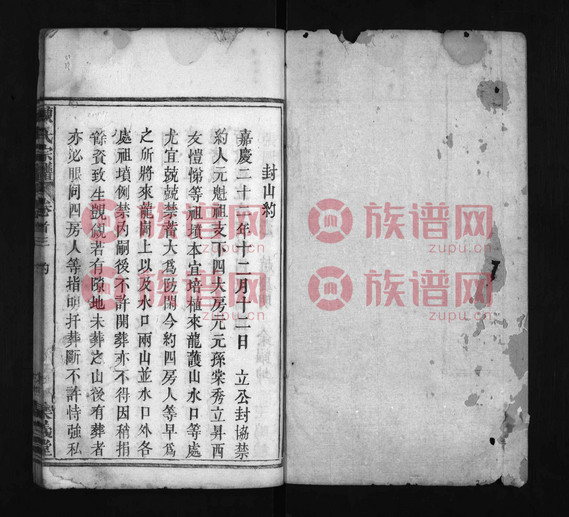 封山約
嘉慶二十年十二月十二日 立公封協禁
約人元魁祖支下四大房元元孫棠秀立昇西
友愷悌等祖墳本宜培植來龍護山水口等處
尤宜兢兢禁蓄大為勁閑今約四房人等早為
之所將來龍崗上以及水口兩山並水口外各
處祖墳側禁內嗣後不許開葬亦不得因稍捐
餘資致生覬覦若有隙地未葬之山後有葬者
亦必眼同四房人等指明扦葬斷不許恃強私
氏宗譜 卷首三 約
族谱网
zupu.cn
族谱网
zupu.cn
族谱网
zupu.cn
族谱网
zupu.cn